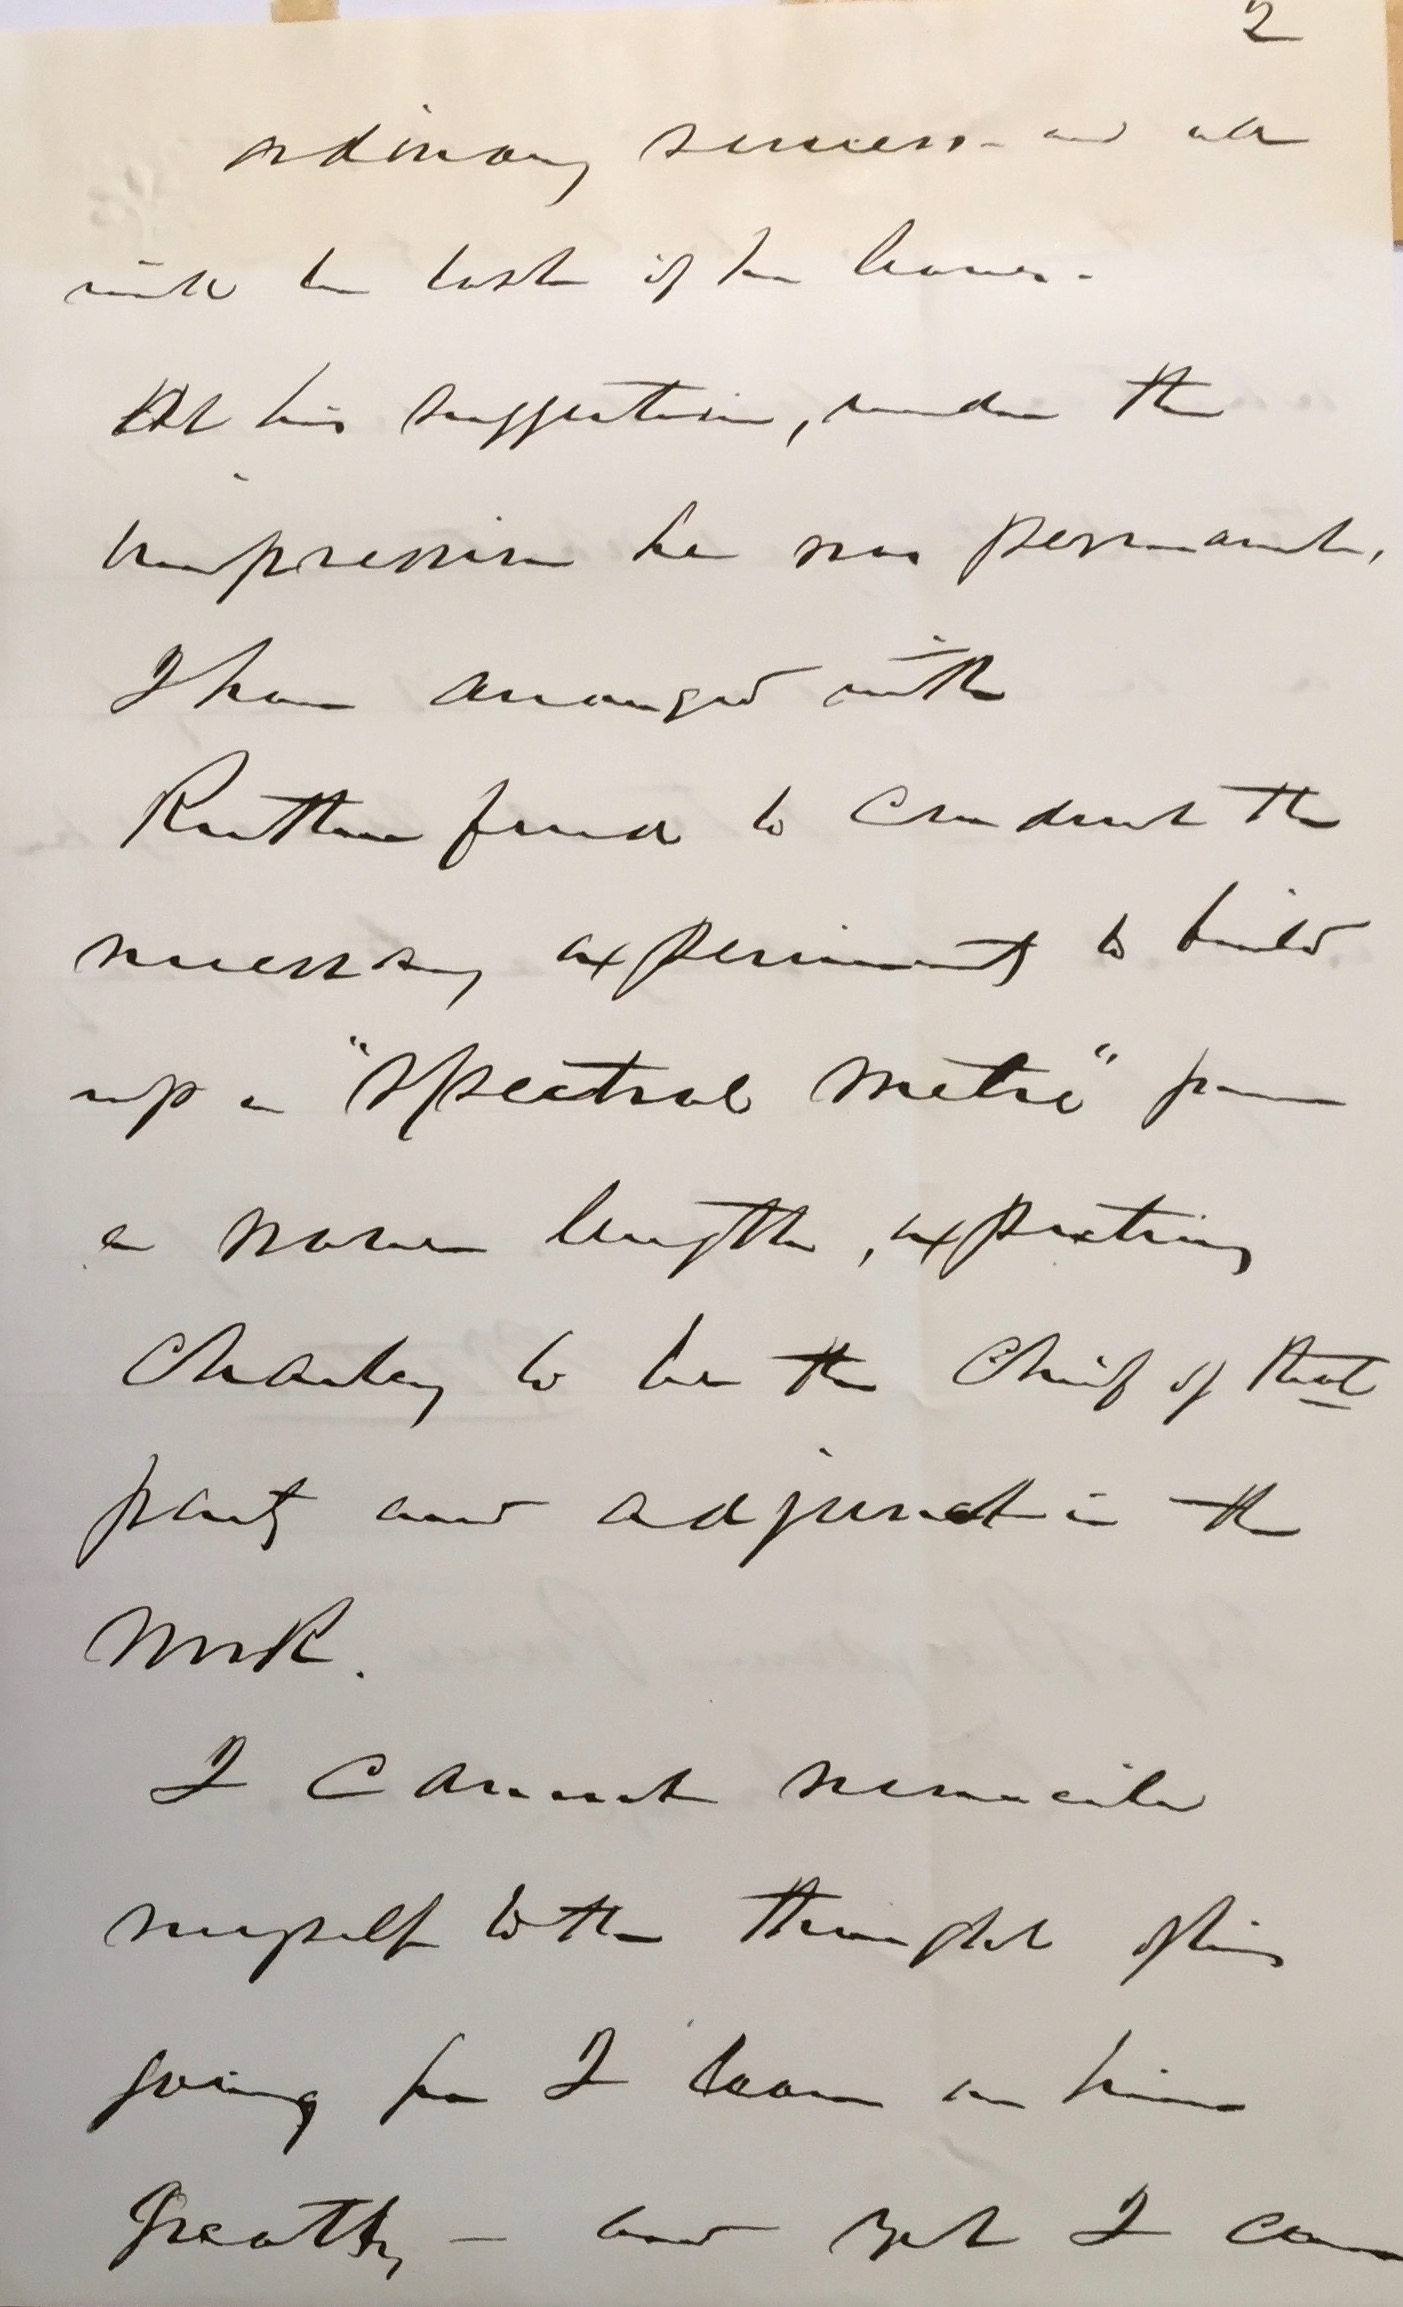 2
ordinary success - and all
will be lost if he leaves -
At his suggestion, under the
impression he was permanent,
I have arranged with
Rutherfurd to conduct the
necessary experiments to build
up a "spectral metre" from
a wave length, expecting
Charley to be the chief of that
party and adjunct in the
work.
I cannot reconcile
myself to the thought of his
going for I lean on him
greatly - and yet I can